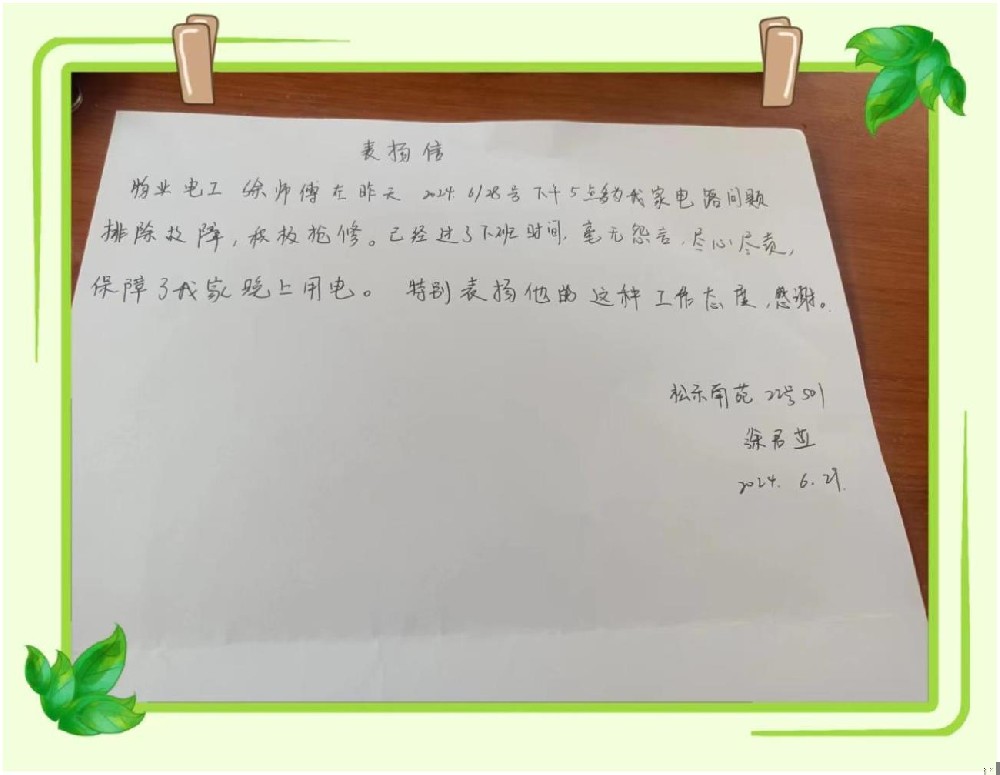 表扬信
物业电工徐师傅在昨天 2024. 6/28号下午5点多为我家电路问题
排除故障,积极抢修。已经过了下班时间,毫无怨言,尽心尽责,
保障了我家晚上用电。特别表扬他的这种工作态度,感谢。
南苑 22号501
徐君
2024. 6. 29.